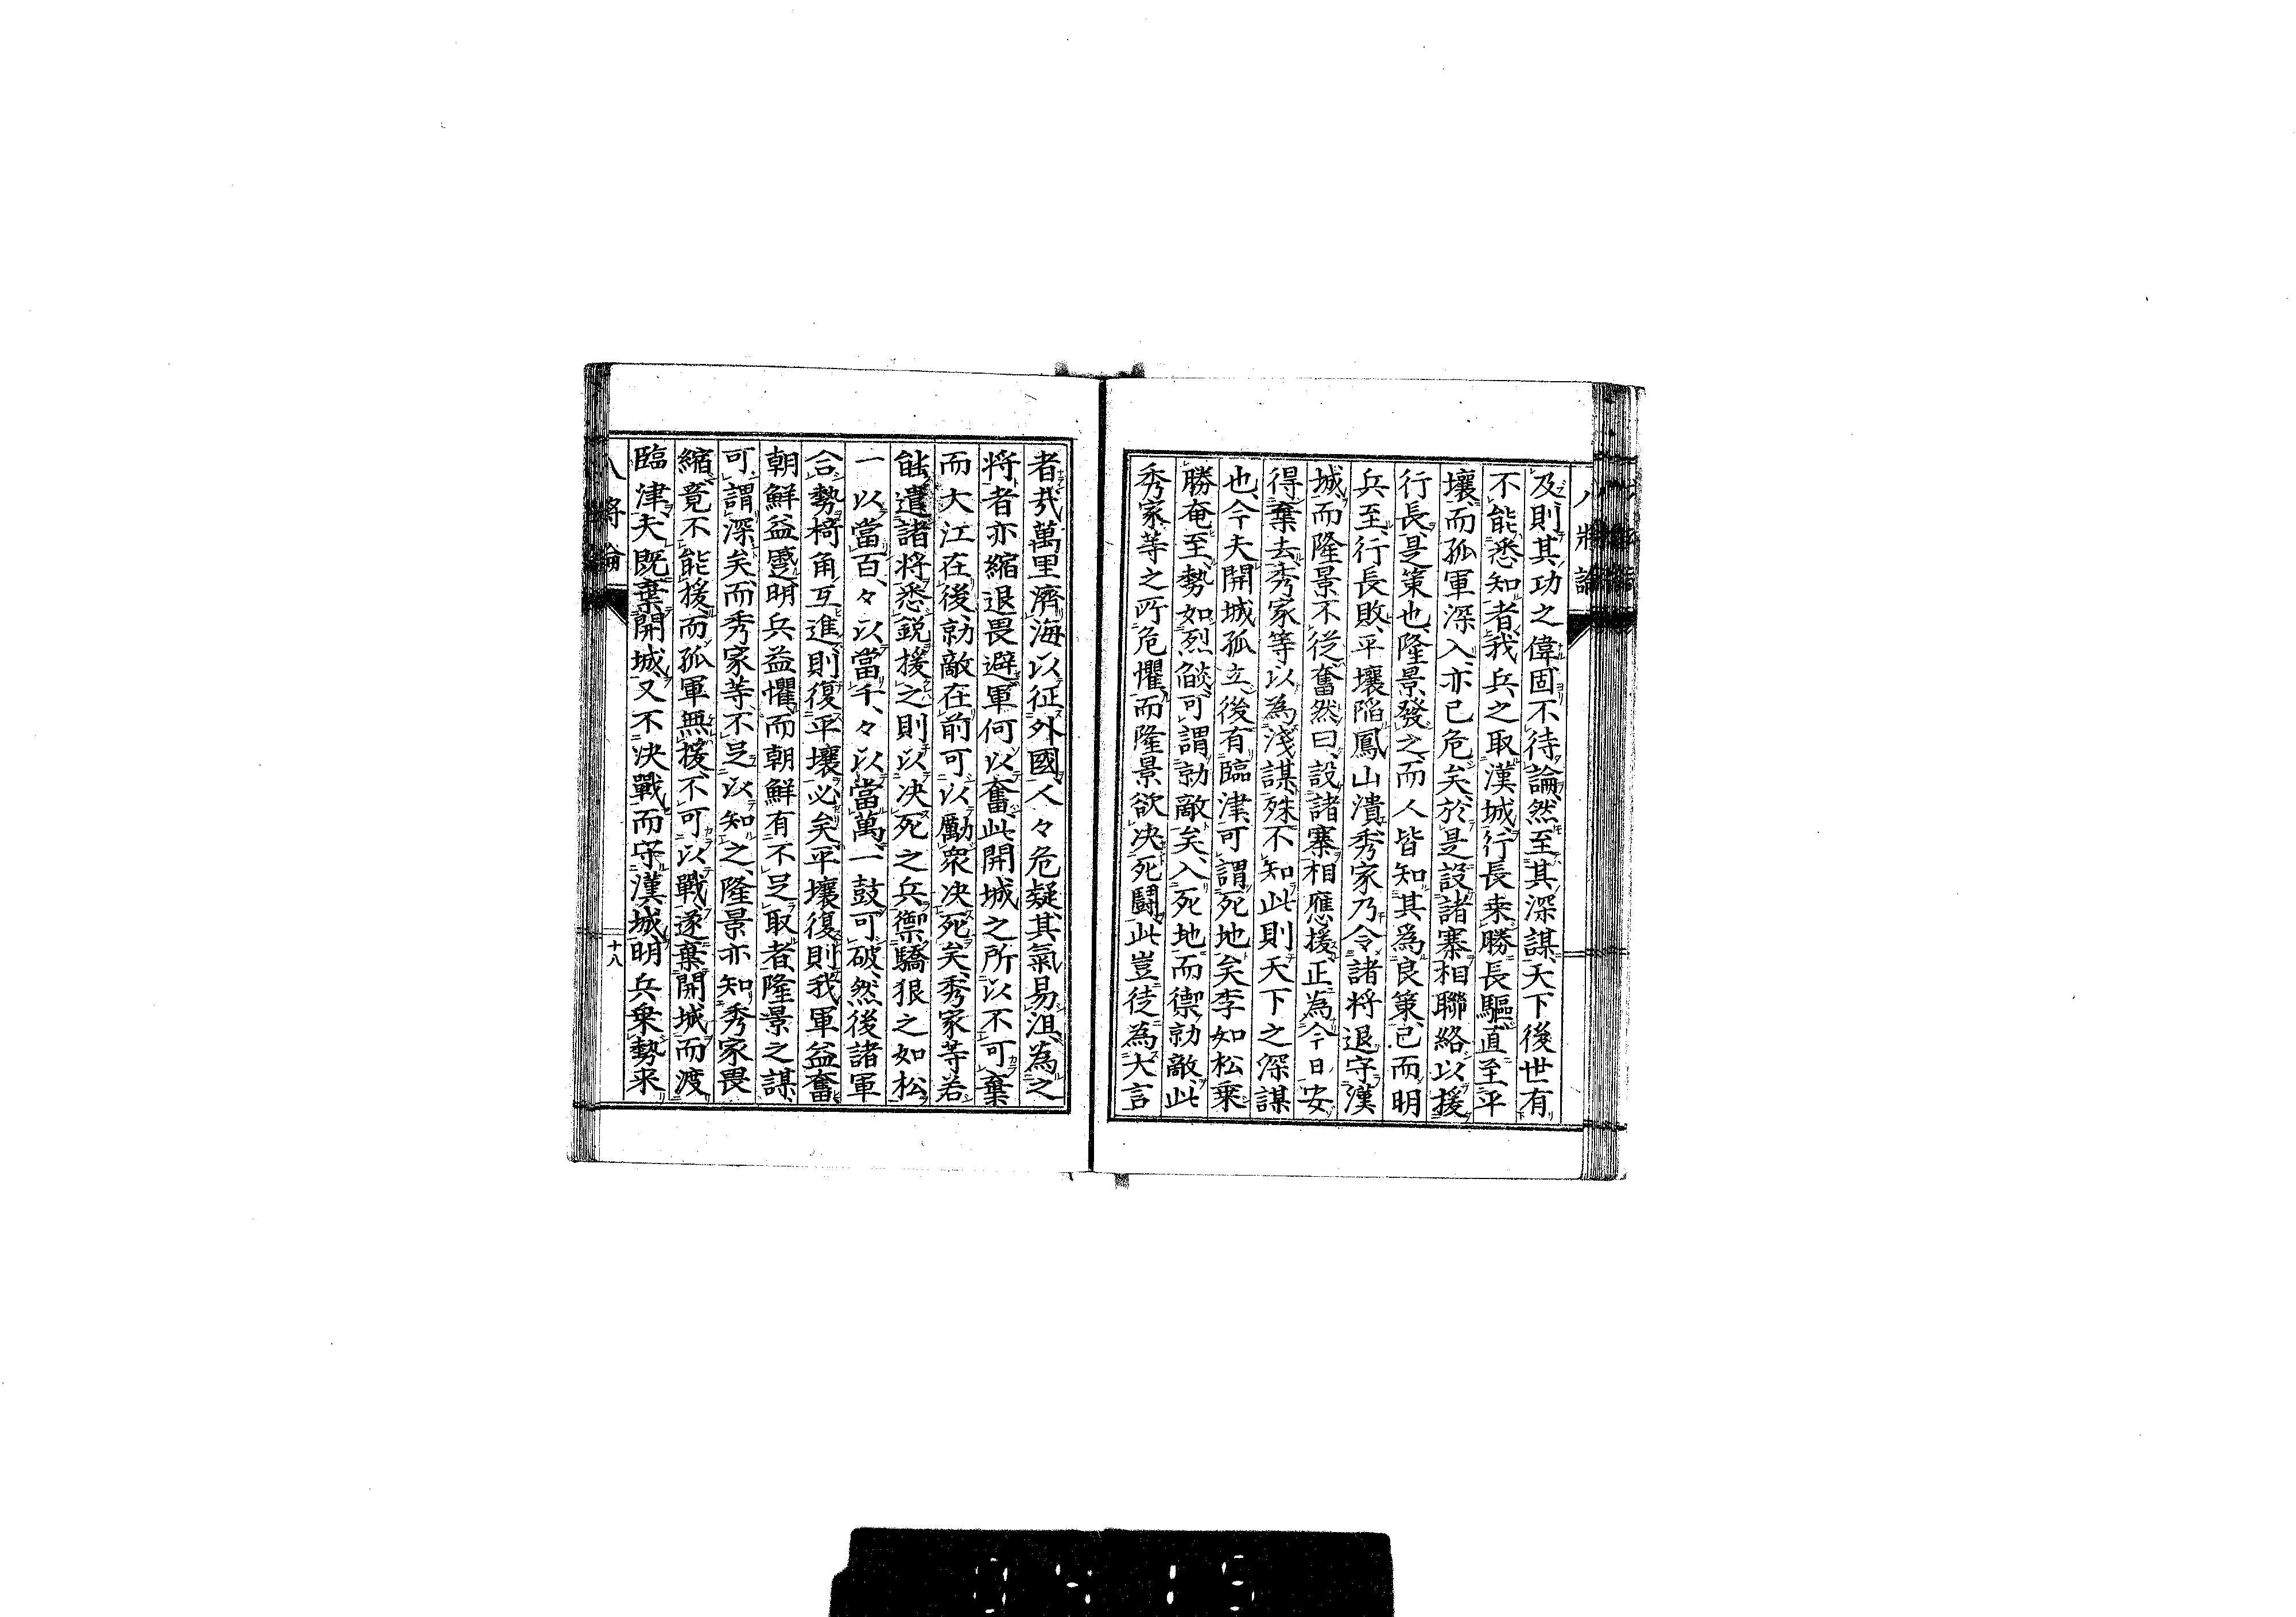 八將論
及則其功之偉固不待論、然至其深謀、天下後世有
不能悉知者、我兵之取漢城、行長乘勝長驅直至平
壤、而孤軍深入、亦已危矣、於是設諸寨相聯絡以援
行長、是策也、隆景發之、而人皆知其爲良策、已而明
兵至、行長敗、平壤陷、鳳山潰、秀家乃令諸將退守漢
城、而隆景不從、奮然曰、設諸寨相應援、正為今日、安
得棄去、秀家等以為淺謀、殊不知此則天下之深謀
也、今夫開城孤立、後有臨津、可謂死地矣、李如松乘
勝奄至、勢如烈燄、可謂勍敵矣、入死地而禦勍敵、此
秀家等之所危懼、而隆景欲决死鬪、此豈徒為大言
者哉、萬里濟海以征外國、人々危疑、其氣易沮、為之
將者亦縮退畏避、軍何以奮、此開城之所以不可棄
而大江在後、勍敵在前、可以勵衆决死矣、秀家等若
能遣諸將悉鋭援之、則以决死之兵、禦驕狠之如松
一以當百、々以當千、々以當萬、一鼓可破、然後諸軍
合勢、犄角互進、則復平壤必矣、平壤復則我軍益奮
朝鮮益蹙、明兵益懼、而朝鮮有不足取者、隆景之謀
可謂深矣、而秀家等、不足以知之、隆景亦知秀家畏
縮、竟不能援、而孤軍無援、不可以戰、遂棄開城而渡
臨津、夫既棄開城、又不决戰而守漢城、明兵乘勢来
八將論
十八